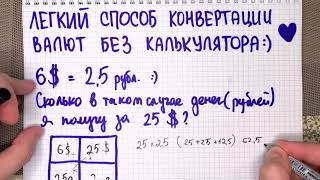 ЛЕГКИЙ СПОСОБ КОНВЕРТАЦИИ
ВАЛЮТ БЕЗ КАЛЬКУЛЯТОРА:)
6$ = 2,5 рубл. :)
Сколько в таком случае денег(рублей)
я получу за 25 $?
6$ 25$
25 × 2,5 (25+25+12,5) 62,5